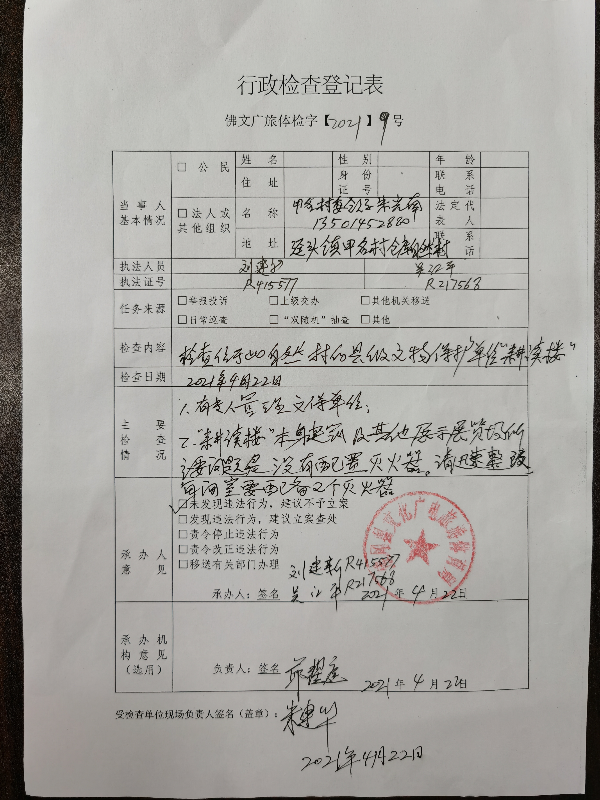 行政检查登记表
佛文广旅体检字【2021】9号
当事人
基本情况
□公民
姓名
性别
年龄
住址
身份
证号
联系
电话
□法人或
其他组织
名称
13501452880
法定代
表人
地址
迳头镇甲名村
联系
电话
执法人员
刘建新
吴江平
执法证号
R415577
R217568
任务来源
□举报投诉 □上级交办 □其他机关移送
□日常巡查 □“双随机”抽查 □其他
检查内容
检查位于 自然村的县级文物保护单位“耕读楼”
检查日期
2021年4月22日
主要
检查
情况
1.有专人管理文保单位;
2.“耕读楼”本身建筑及其他展示展览场所
主要问题是没有配置灭火器。请迅速整改
每间室要配备2个灭火器
承办人
意见
□未发现违法行为,建议不予立案
□发现违法行为,建议立案查处
□责令停止违法行为
□责令改正违法行为
□移送有关部门办理
刘建新R415577
承办人:签名 吴江平R217568 2021年4月22日
承办机
构意见
(选用)
负责人:签名
2021年4月22日
受检查单位现场负责人签名(盖章):朱建华
2021年4月22日